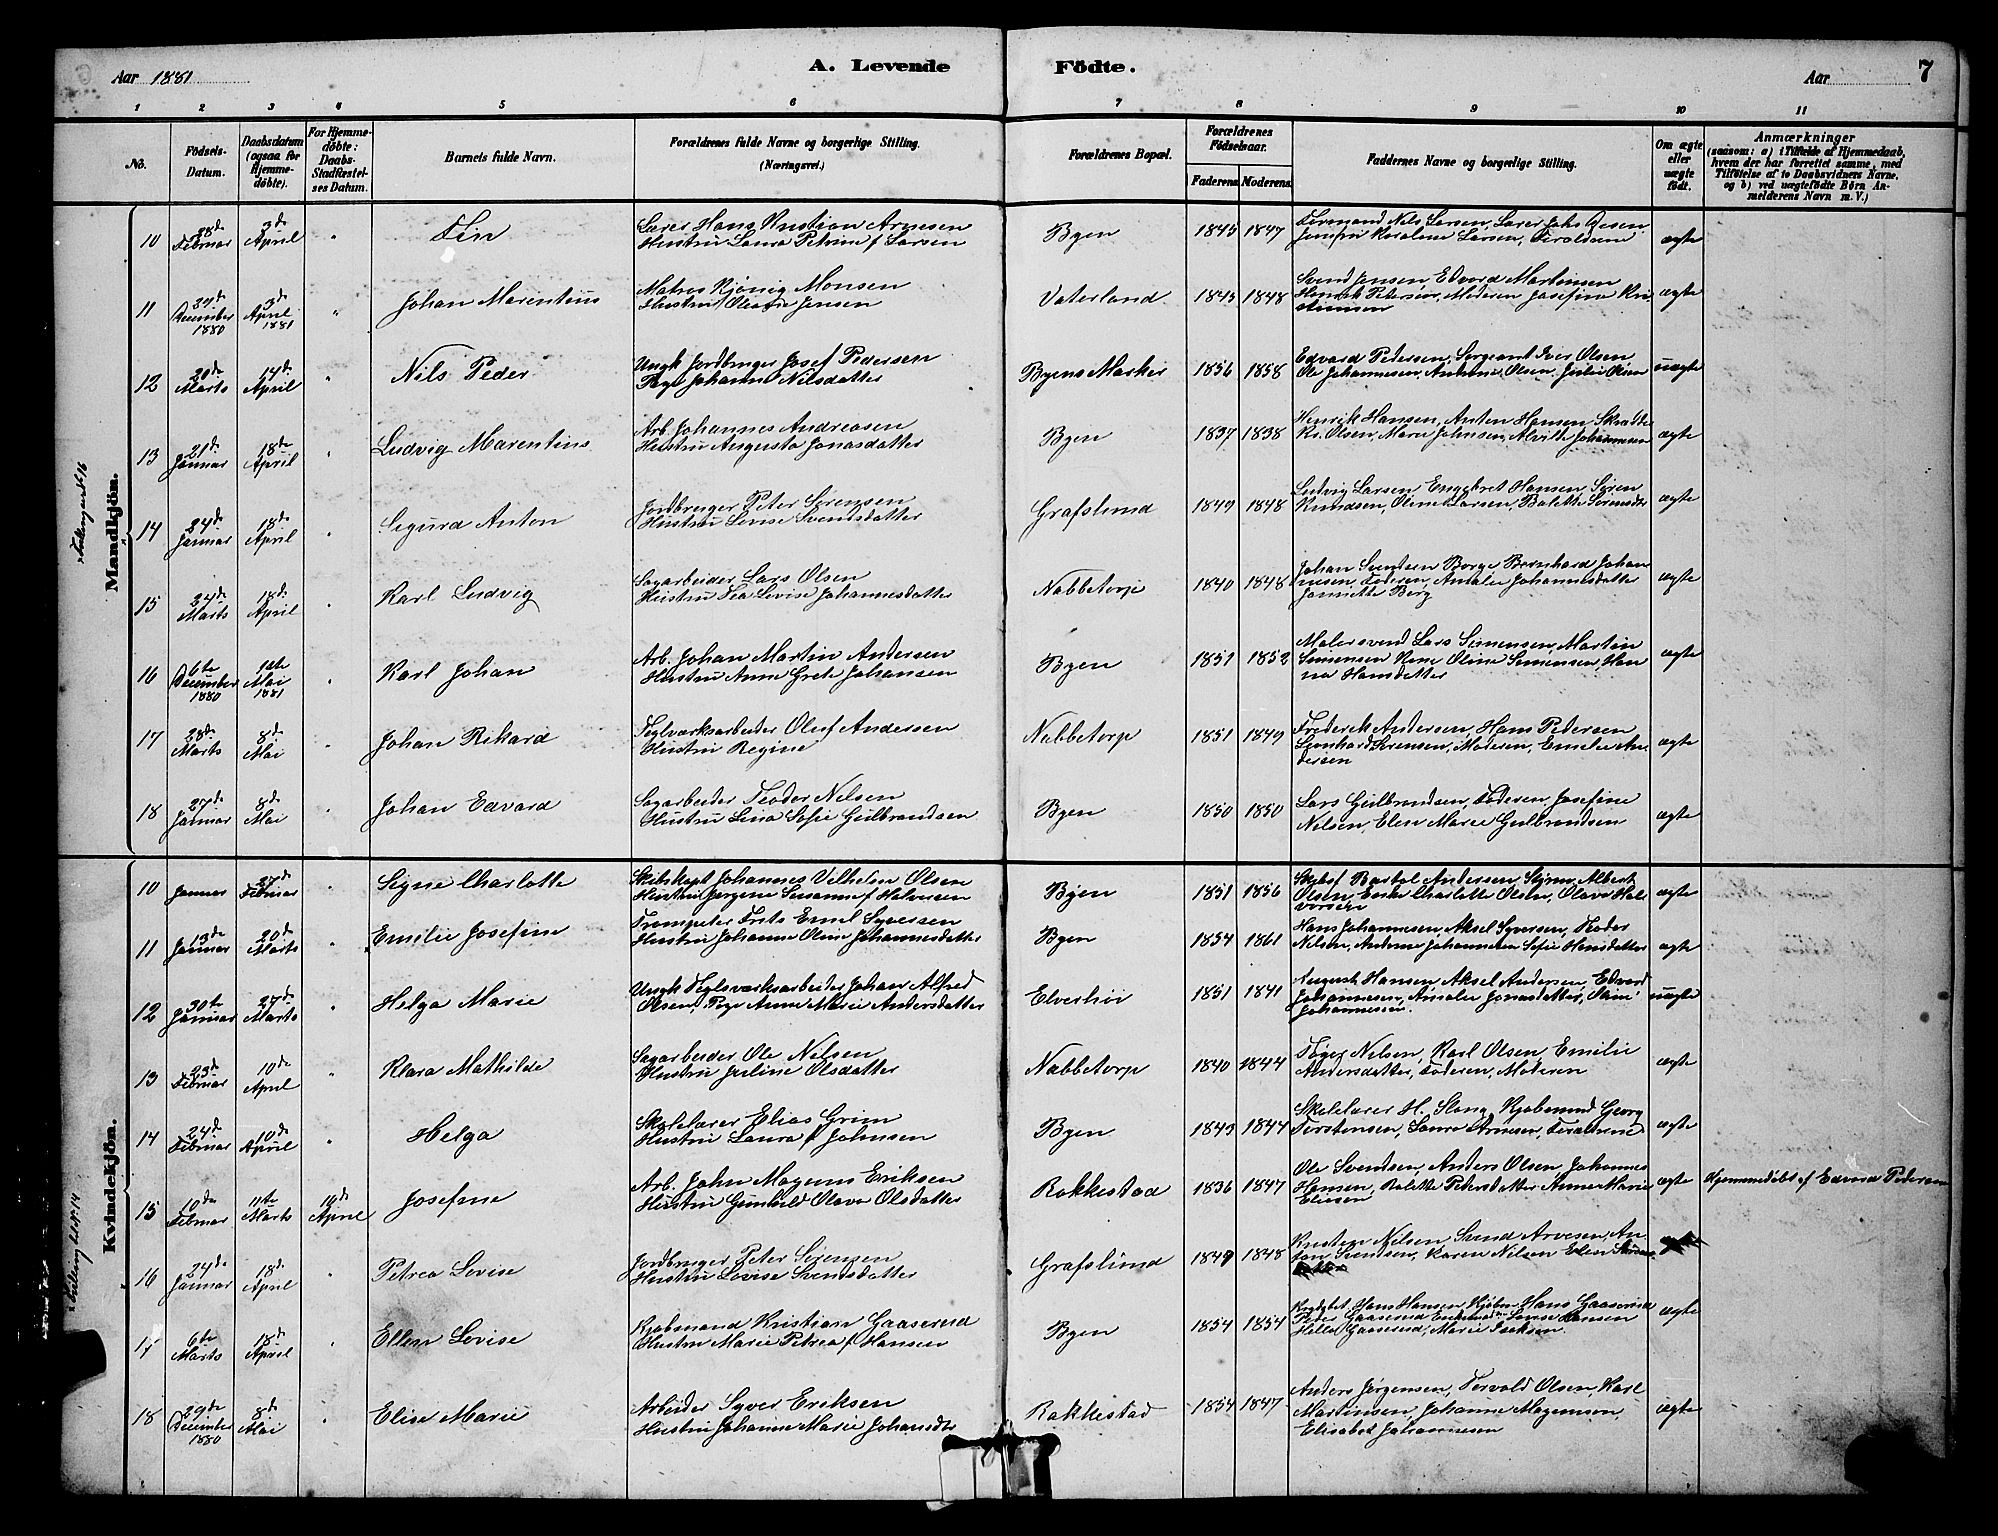 Aar 1881
A. Levende Födte.
Aar
7
1 2 3 4 5 6 7 8 9 10 11
Nô.
Födsels-Datum.
Daabsdatum (ogsaa for Hjemme-döbte).
For Hjemme-döbte: Daabs-Stadfæstel-ses Datum.
Barnets fulde Navn.
Forældrenes fulde Navne og borgerlige Stilling.
(Næringsvei.)
Forældrenes Bopæl.
Forældrenes Födselsaar.
Faderens Moderens
Faddernes Navne og borgerlige Stilling.
Om ægte eller uægte födt.
Anmærkninger
(saasom: a) i Tilfælde af Hjemmedaab, hvem der har forrettet samme, med Tilföielse af to Daabsvidners Navne, og b) ved uægtefödte Börn An-melderens Navn m. V.)
Mandkjön.
Tvillingar til 16
10 28de Februar 3de April " Fin Lærer Hans Kristian Arnesen Byen 1845 1847 Nils Larsen, Lærer Johs ægte
Hustru Laura Petrine f Larsen Larsen, Forældrene
11 December 1880 3de April 1881 " Johan Marentius Matros Monsen Vaterland 1845 1848 Svend Jensen, Edvard Martinsen ægte
Hustru Jensen Henrik Petersen, Moderen Josefine Kri
stiansen
12 20de Marts 14de April " Nils Peder Ungk Jordbruger Josef Pedersen Byens Marker 1856 1858 Edvard Pedersen, Sergeant Iver Olsen uægte
Pige Johanne Nilsdatter Ole Johannesen, Olsen, Julie Olsen
13 21de Januar 18de April " Ludvig Marentius Arb. Johannes Andreasen Byen 1837 1838 Henrik Hansen, Anton Hansen ægte
Hustru Augusta Jonasdatter Kr. Olsen, Johnsen, Johannesen
14 24de Januar 18de April " Sigurd Anton Jordbruger Peter Sørensen Grafslund 1849 1848 Ludvig Larsen Engebret Hansen Søren ægte
Hustru Lovise Svendsdatter Knudsen, Oline Larsen, Balette Sørensdtr
15 24de Marts 18de April " Karl Ludvig Sagarbeider Lars Olsen Nabbetorp 1840 1848 Johan Svendsen Borge Bernhard Johan ægte
Hustru Tea Lovise Johannesdatter nesen, Faderen, Amalie Johannesdatter
Berg
16 6te December 1880 1ste Mai 1881 " Karl Johan Arb. Johan Martin Andersen Byen 1851 1852 Malersvend Lars Simensen, Martin ægte
Hustru Anne Grete Johansen Simensen Oline Simensen, Han
na Hansdatter
17 28de Marts 8de Mai " Johan Rikard Teglværksarbeider Oluf Andersen Nabbetorp 1851 1849 Frederik Andersen, Hans Pedersen ægte
Hustru Regine Sørensen, Moderen, Emilie An
dersen
18 27de Januar 8de Mai " Johan Edvard Sagarbeider Teodor Nilsen Byen 1850 1850 Lars Gulbrandsen, Faderen, Josefine ægte
Hustru Lina Sofie Gulbrandsen Nilsen, Elen Marie Gulbrandsen
Kvindekjön.
10 Januar 27de Februar " Signe Charlotte Skibskapt Johannes Vilhelm Olsen Byen 1851 1856 Bartol Andersen Albert ægte
Hustru Jørgine Susanne f Halvorsen Olsen, Charlotte Olsen, Olava Hal
vorsen
11 13de Januar 20de Marts " Emilie Josefine Trompeter Frits Emil Syversen Byen 1854 1861 Hans Johannesen, Aksel Syversen, Teodor ægte
Hustru Johanne Oline Johannesdatter Nilsen, Johannesen Sofie Hansdatter
12 30te Januar 27de Marts " Helga Marie Ungk Teglværksarbeider Johan Alfred Elverhöi 1851 1841 August Hansen, Aksel Andersen, Edvard uægte
Olsen, Pige Anne Marie Andersdatter Johannesen, Amalie Jonasdatter,
Johannessen.
13 23de Februar 10de April " Klara Mathilde Sagarbeider Ole Nilsen Nabbetorp 1840 1844 Nilsen, Karl Olsen, Emilie ægte
Hustru Juline Olsdatter Andersdatter, Faderen, Moderen
14 24de Februar 10de April " Helga Skolelærer Elias Grim Byen 1843 1844 Skolelærer H. Slang, Kjøbmand Georg ægte
Hustru Laura f Johnsen Torstensen, Laura Arnesen, Forældrene
15 10de Februar 11te Marts 14de April Josefine Arb. John Magnus Eriksen Rokkestad 1836 1847 Ole Svendsen, Anders Olsen, Johannes ægte Hjemmedöbt af Edvard Petersen
Hustru Gunhild Olava Olsdatter Hansen, Balette Petersdatter Anne Marie
Eliesen
16 24de Januar 18de April " Petrea Lovise Jordbruger Peter Sørensen Grafslund 1849 1848 Kristian Nilsen Svend Arvesen, An
Hustru Lovise Svendsdatter ton Svendsen, Karen Nilsen Elen
17 6te Marts 18de April " Ellen Lovise Kjøbmand Kristian Gaaserud Byen 1854 1854 Hans Hansen Kjøbm. Hans Gaaserud ægte
Hustru Marie Petrea f Hansen Peter Gaaserud Lovise Hansen
Gaaserud, Marie Isaksen.
18 29de December 1880 8de Mai " Elise Marie Arbeider Syver Eriksen Rakkestad 1854 1847 Anders Jørgensen, Torvald Olsen, Karl ægte
Hustru Johanne Marie Johansdtr Martinsen, Johanne Magnusen,
Elisabed Johannesen